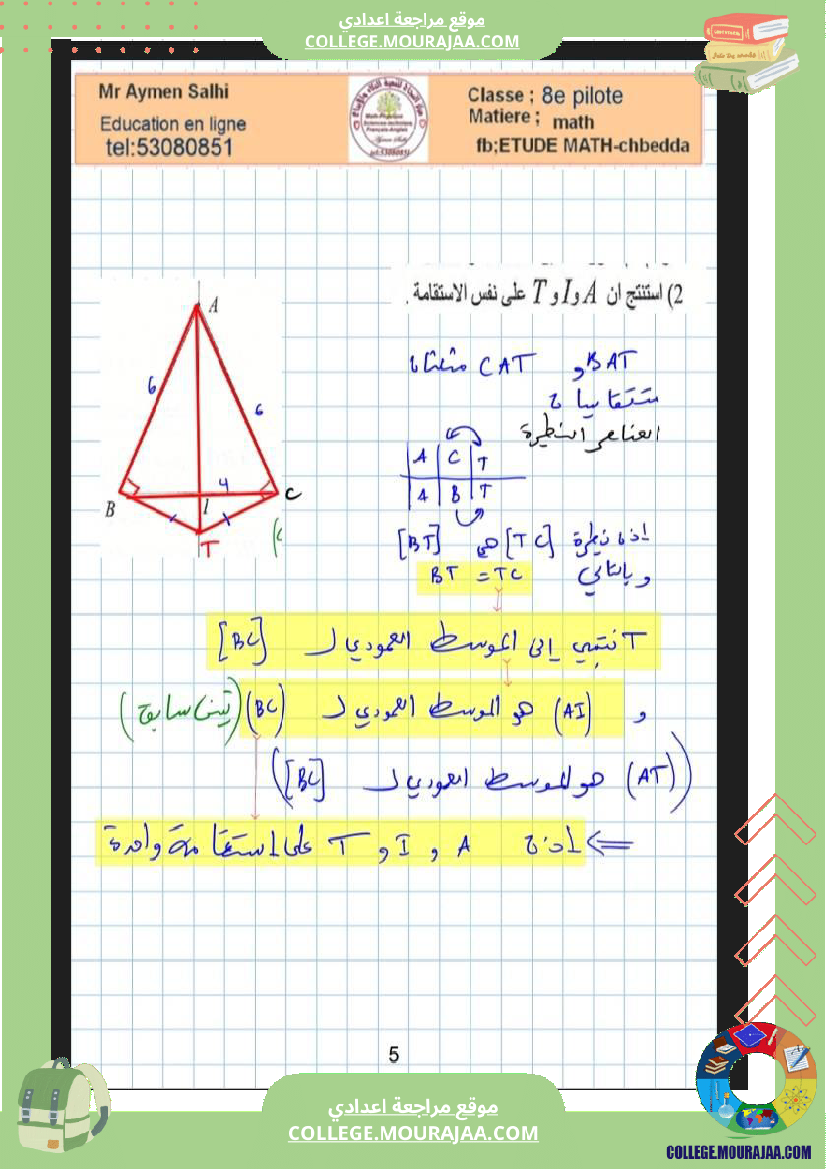 موقع مراجعة اعدادي
COLLEGE.MOURAJAA.COM
Mr Aymen Salhi
Education en ligne
tel:53080851
Classe ; 8e pilote
Matiere ; math
fb;ETUDE MATH-chbedda
2) استنتج ان A و I و T على نفس الاستقامة .
BAT و CAT مثلثان
متقايسان
العناصر النظيرة
A C T
A B T
A
6
6
4
B
I
C
T
اذن نظيرة [TC] هي [BT]
و بالتالي BT = TC
T تنتمي إلى الموسط العمودي لـ [BC]
و (AI) هو الموسط العمودي لـ [BC] (تبين سابقا)
((AT) هو الموسط العمودي لـ [BC])
<= اذن A و I و T على استقامة واحدة
5
موقع مراجعة اعدادي
COLLEGE.MOURAJAA.COM
COLLEGE.MOURAJAA.COM